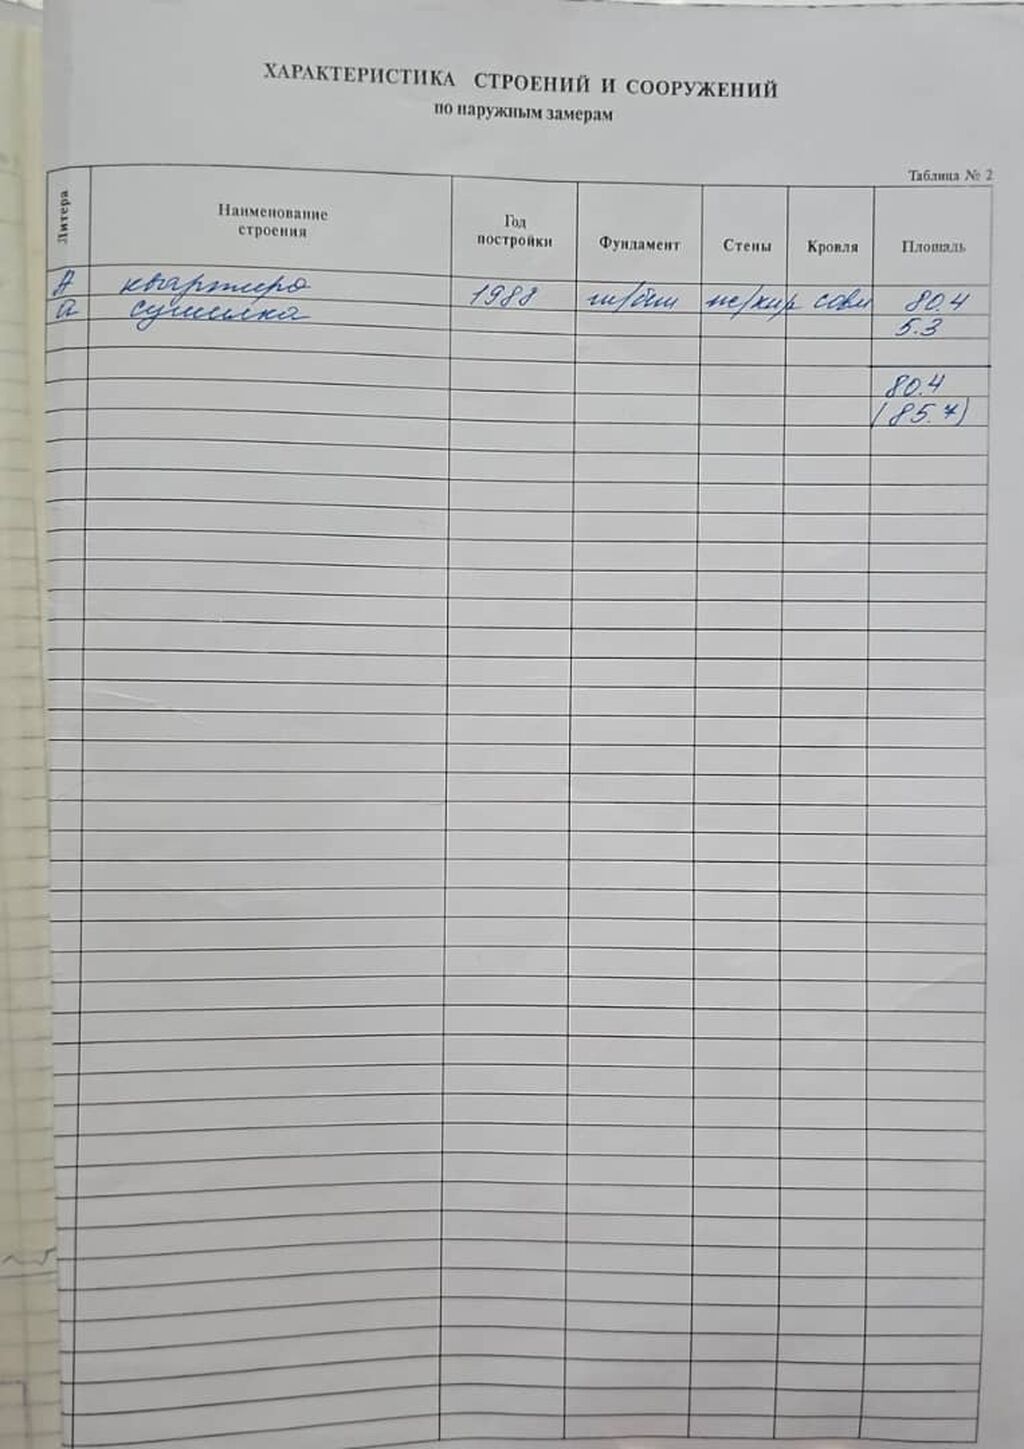 ХАРАКТЕРИСТИКА СТРОЕНИЙ И СООРУЖЕНИЙ
по наружным замерам
Таблица № 2
Литера Наименование строения Год постройки Фундамент Стены Кровля Площадь
А квартира 1988 ш/бит жж/кир совм 80.4
а сушилка 5.3
80.4
(85.7)